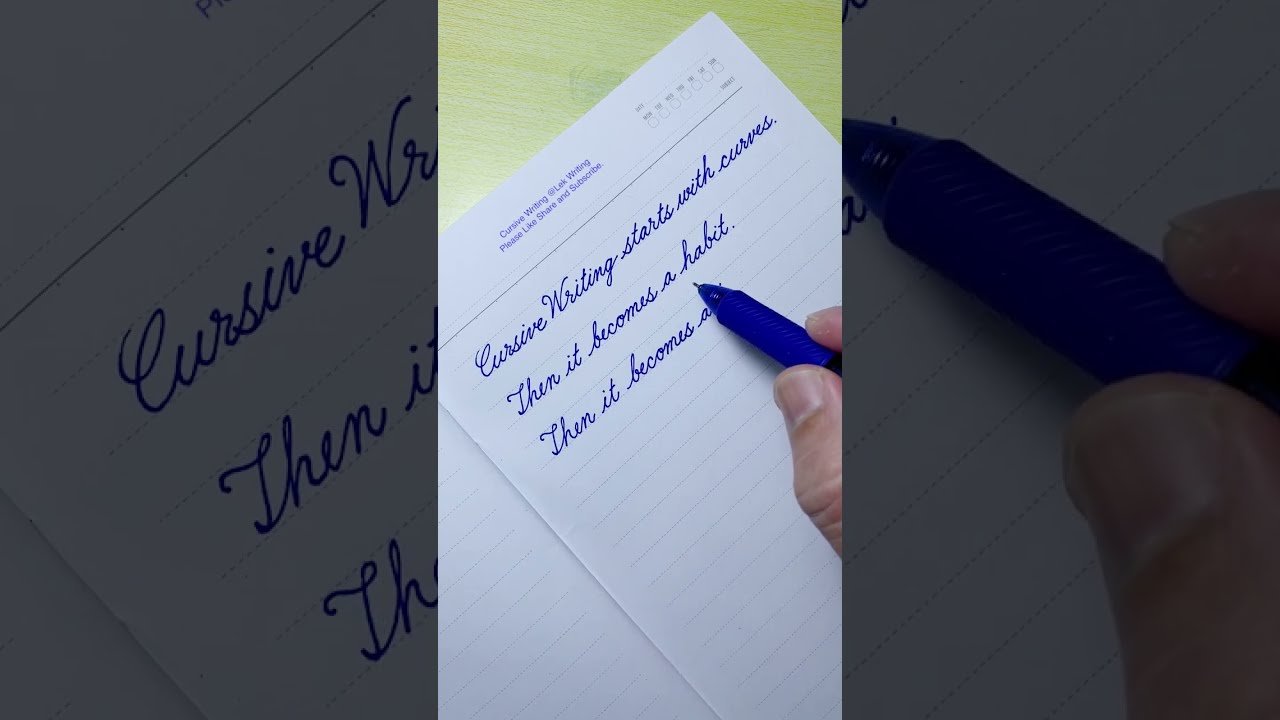 DATE
MON TUE WED THU FRI SAT SUN
SUBJECT
Cursive Writing @Lek Writing
Please Like Share and Subscribe.
Cursive Writing starts with curves.
Then it becomes a habit.
Then it becomes a